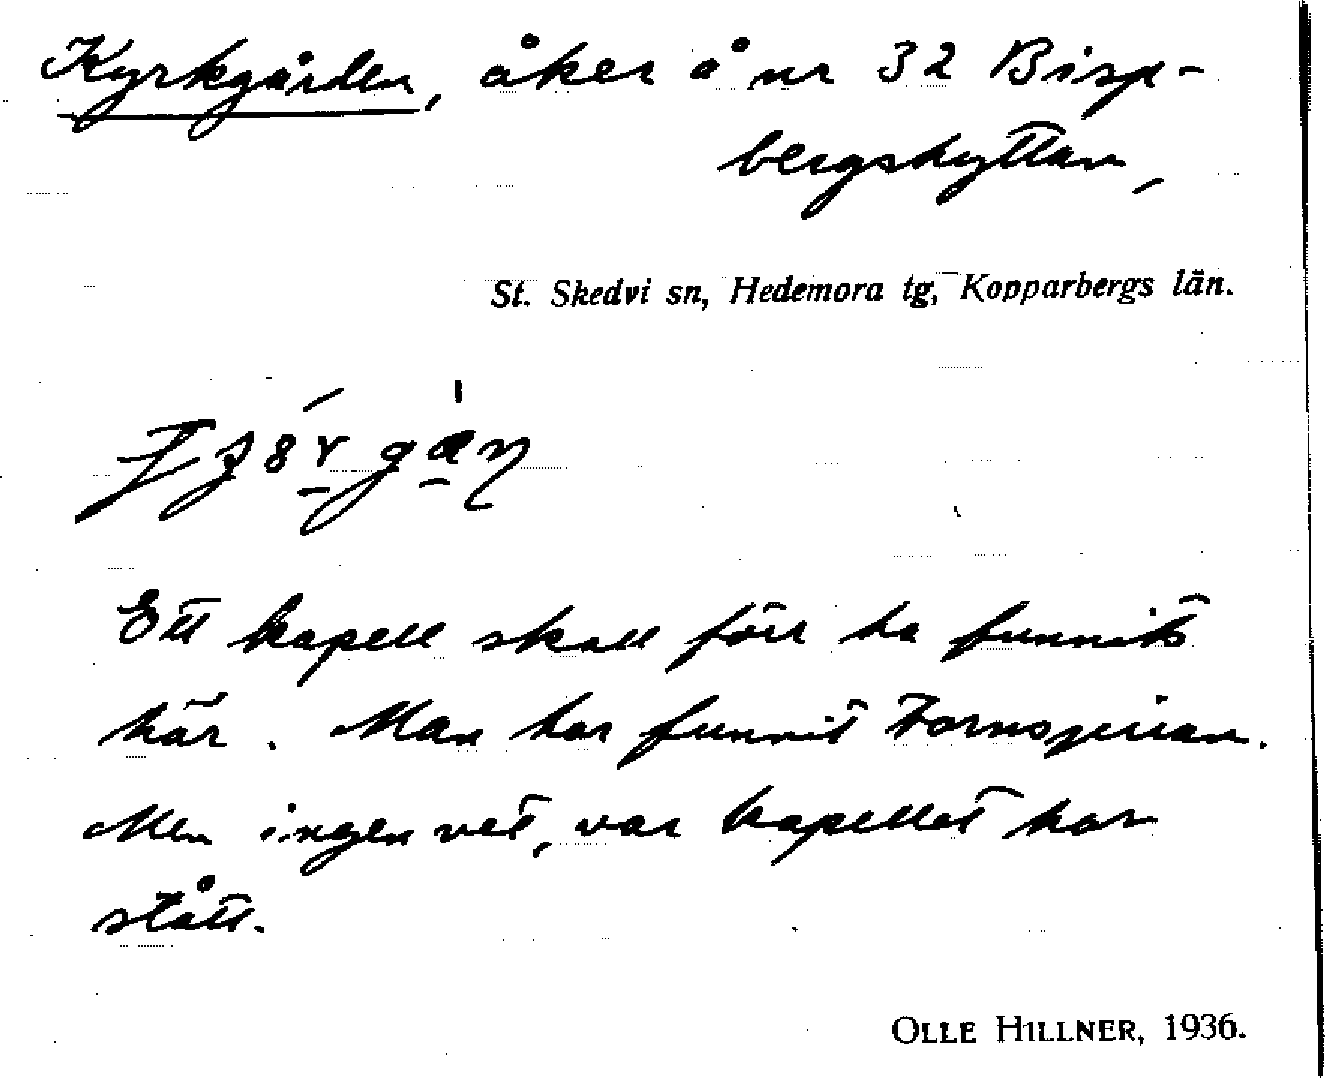 Kyrkgården, åker å nr 32 Bisp-
bergshyttan,
St. Skedvi sn, Hedemora tg, Kopparbergs län.
Ett kapell skall förr ha funnits
här. Man har funnit tornspiran.
Men ingen vet, var kapellet har
stått.
OLLE HILLNER, 1936.